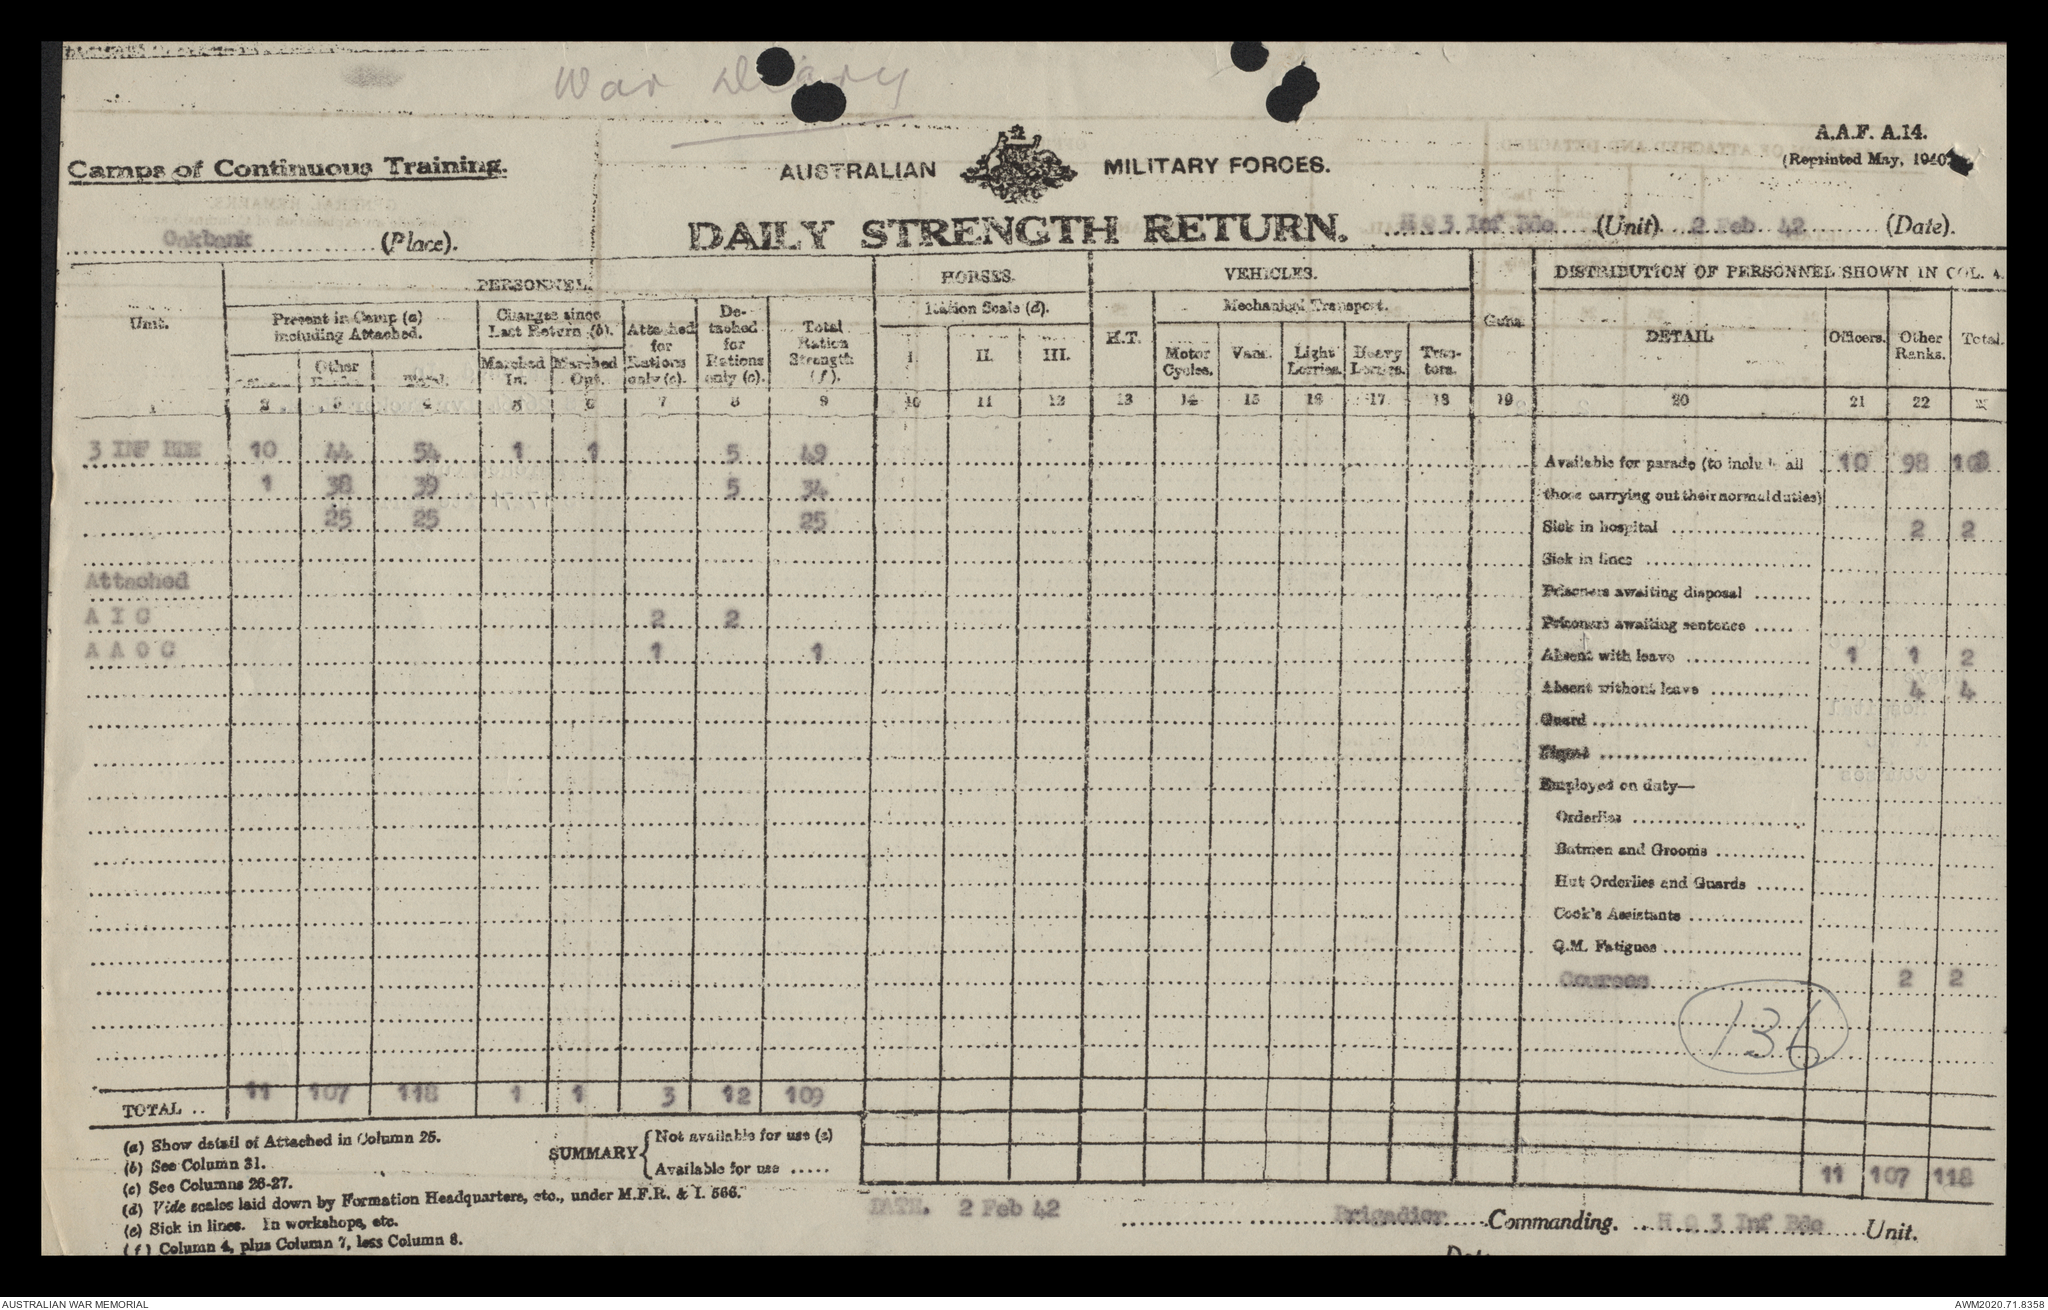 War Diary
Camps of Continuous Training.
AUSTRALIAN MILITARY FORCES.
A.A.F. A.14.
(Reprinted May, 1940)
Oakbank (Place).
DAILY STRENGTH RETURN.
H Q 3 Inf Bde (Unit) 2 Feb 42 (Date).
Unit. PERSONNEL. HORSES. VEHICLES. Guns. DISTRIBUTION OF PERSONNEL SHOWN IN COL. 4.
Present in Camp (a) including Attached. Changes since Last Return (b). Attached for Rations only (c). Detached for Rations only (c). Total Ration Strength (f). Ration Scale (d). H.T. Mechanical Transport. DETAIL Officers. Other Ranks. Total.
Other Total. Marched In. Marched Out. I. II. III. Motor Cycles. Vans. Light Lorries. Heavy Lorries. Tractors.
1 2 3 4 5 6 7 8 9 10 11 12 13 14 15 16 17 18 19 20 21 22
3 INF BDE 10 44 54 1 1 5 49 Available for parade (to include all 10 98 108
1 38 39 5 34 those carrying out their normal duties)
25 25 25 Sick in hospital 2 2
Sick in lines
Attached Prisoners awaiting disposal
A I C 2 2 Prisoners awaiting sentence
A A O C 1 1 Absent with leave 1 1 2
Absent without leave 4 4
Guard
Piquet
Employed on duty—
Orderlies
Batmen and Grooms
Hut Orderlies and Guards
Cook's Assistants
Q.M. Fatigues
Courses 2 2
136
TOTAL .. 11 107 118 1 1 3 12 109
(a) Show detail of Attached in Column 25.
(b) See Column 31.
(c) See Columns 26-27.
(d) Vide scales laid down by Formation Headquarters, etc., under M.F.R. & I. 566.
(e) Sick in lines. In workshops, etc.
(f) Column 4, plus Column 7, less Column 8.
SUMMARY { Not available for use (e)
Available for use .....
11 107 118
DATE. 2 Feb 42 Brigadier Commanding. H Q 3 Inf Bde Unit.
AUSTRALIAN WAR MEMORIAL
AWM2020.71.8358